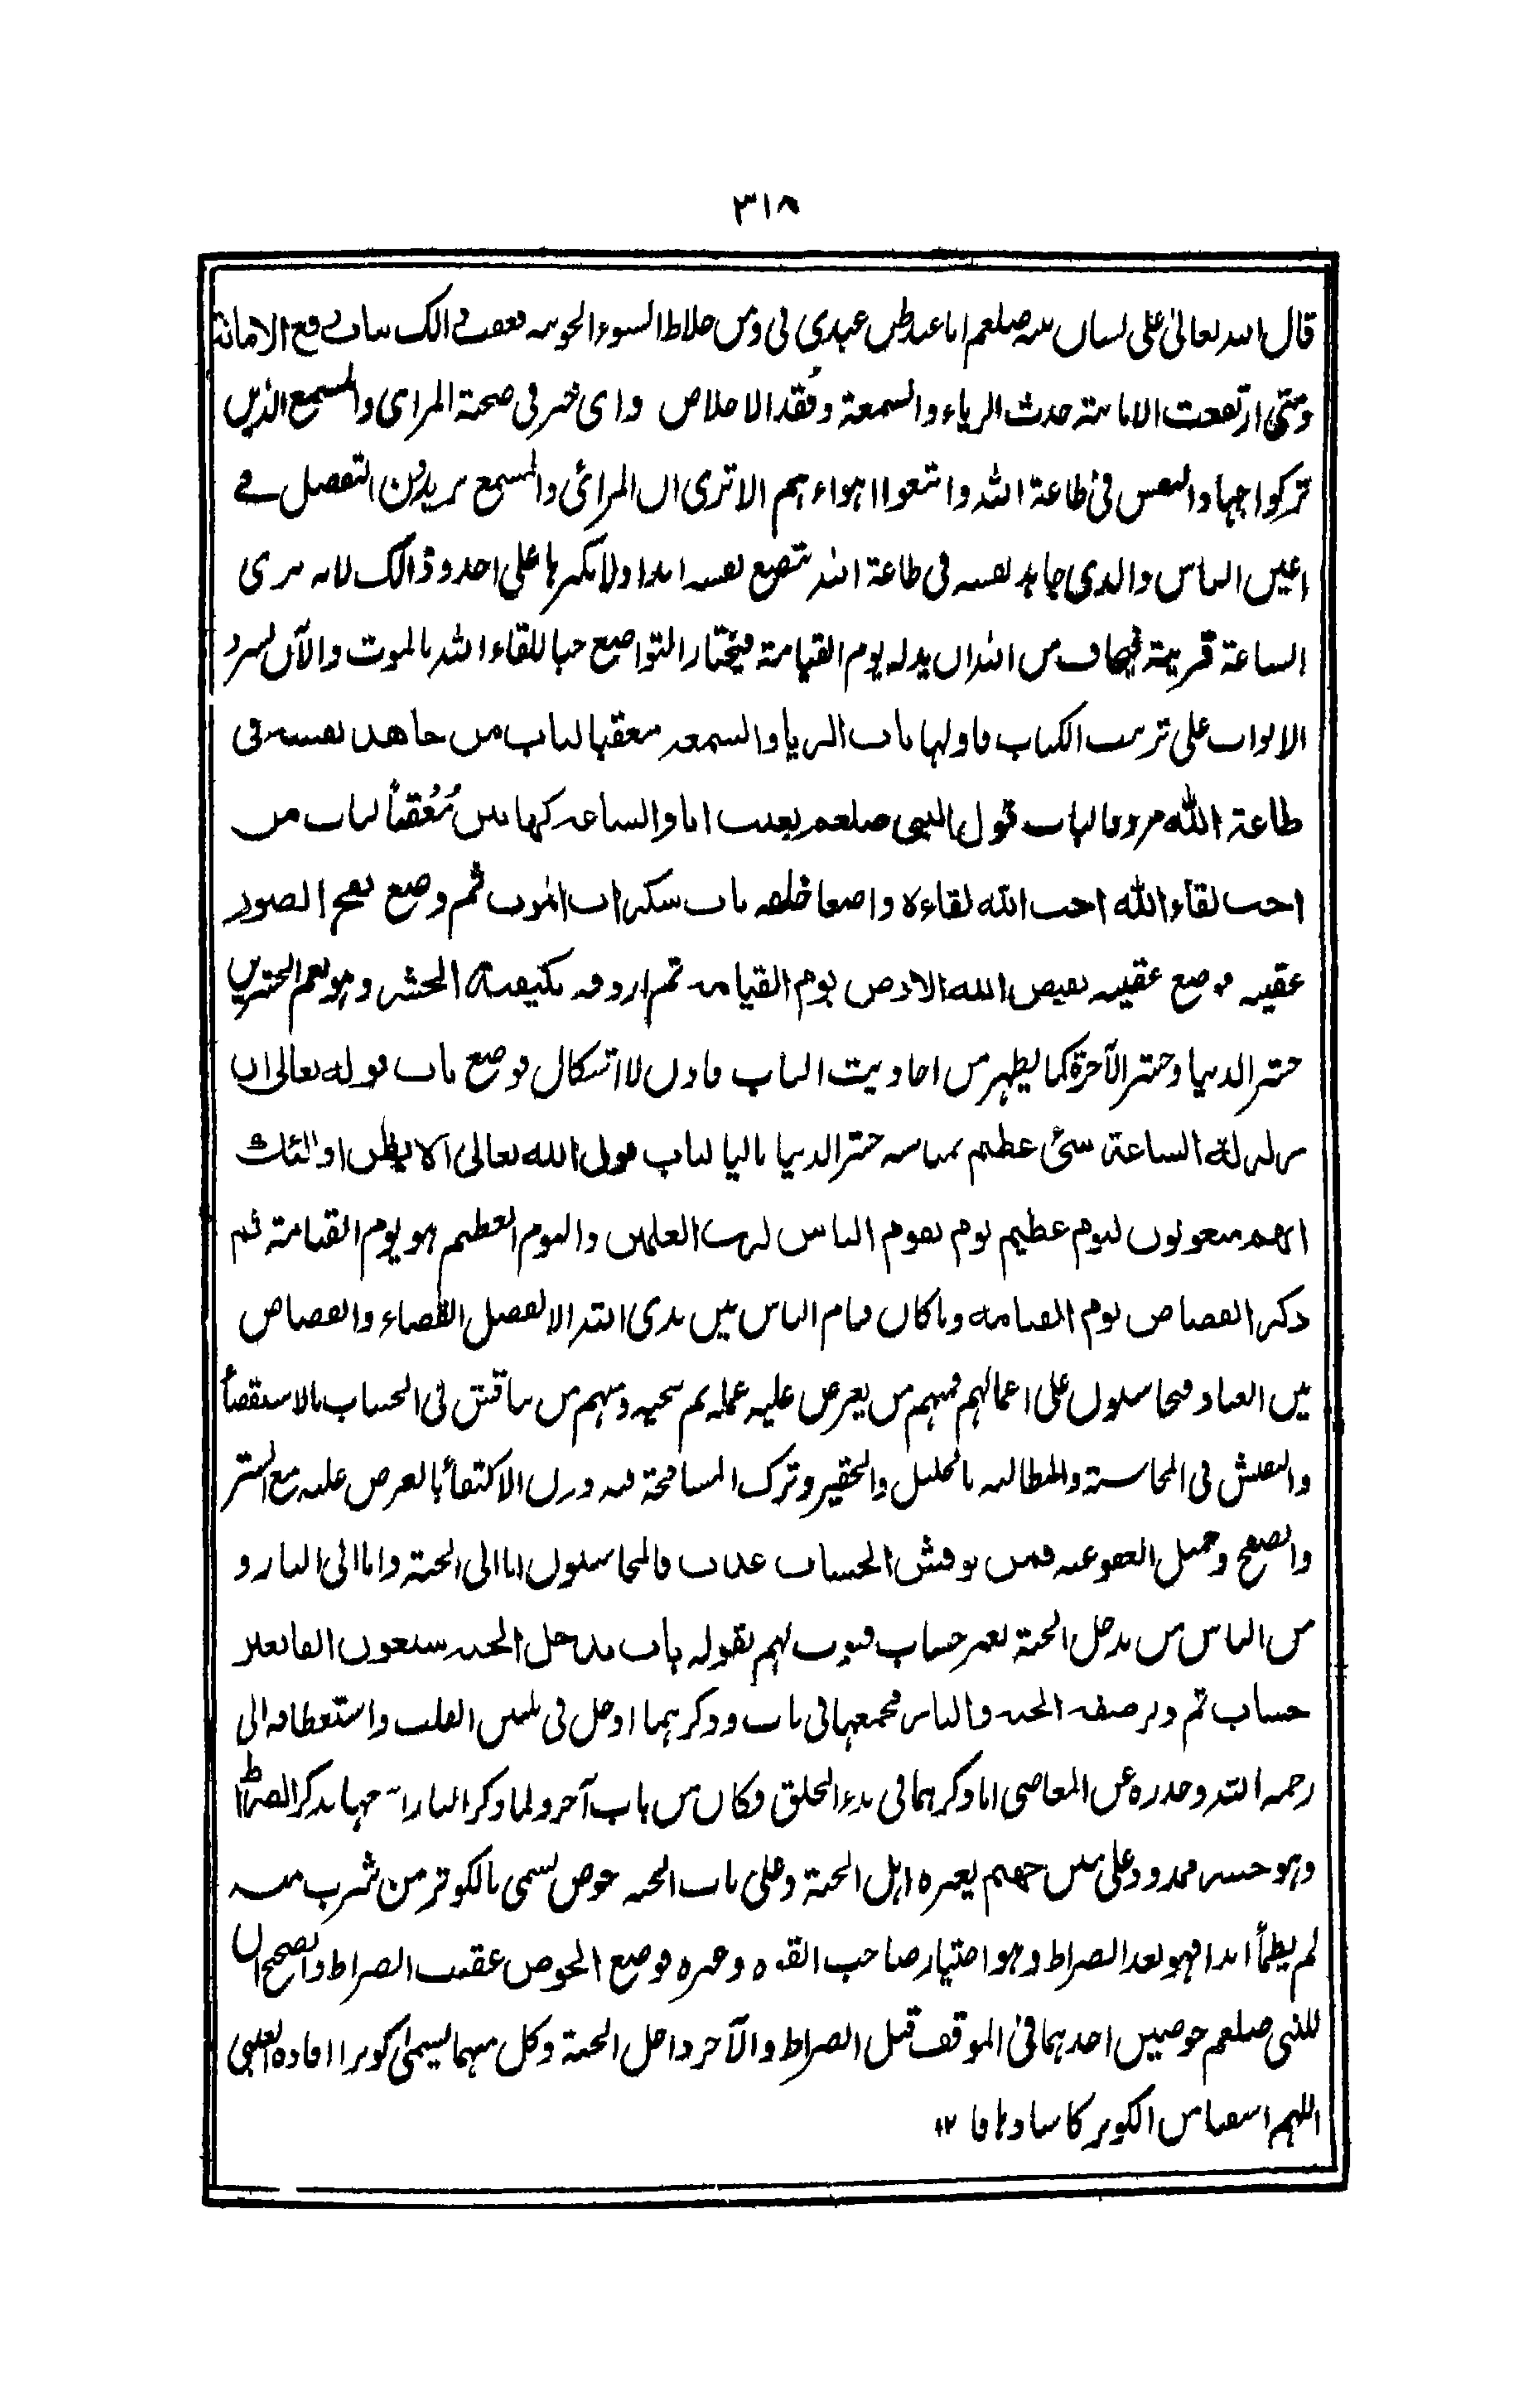 ٣١٨
قال الله تعالى على لسان نبيه صلعم انا عند ظن عبدي بي ومن خلاط السوء الخونة فعقب ذالك بباب رفع الامانة
ومتى ارتفعت الامانة حدث الرياء والسمعة وفقد الاخلاص واى خير فى صحبة المرائ والمسمع الذين
تركوا جهاد النفس فى طاعة الله واتبعوا اهواءهم الا ترى ان المرائى والمسمع يريدون التفضل فى
اعين الناس والذى جاهد نفسه فى طاعة الله تتضع نفسه ابدا ولا يكبرها على احد وذالك لانه يرى
الساعة قريبة فيخاف من الله ان يذله يوم القيامة فيختار التواضع حبا للقاء الله بالموت والآن نسرد
الابواب على ترتيب الكتاب فاولها باب الريا والسمعة معقبا لباب من جاهد نفسه فى
طاعة الله مردفا لباب قول النبى صلعم بعثت انا والساعة كهاتين مُعُقباً لباب من
احب لقاء الله احب الله لقاءه واضعا خلفه باب سكرات الموت ثم وضع نفخ الصور
عقيبه فوضع عقيبه يقبض الله الارض يوم القيامة ثم اردفه بكيفية الحشر وهو يعم الحشرين
حشر الدنيا وحشر الآخرة كما يظهر من احاديث الباب فادن لا اشكال فوضع باب قوله تعالى ان
زلزلة الساعة شئ عظيم بمناسبة حشر الدنيا تاليا لباب قول الله تعالى الا يظن اولئك
انهم مبعوثون ليوم عظيم يوم يقوم الناس لرب العلمين واليوم العظيم هو يوم القيامة ثم
ذكر القصاص يوم القيامة وما كان قيام الناس بين يدى الله الا لفصل القضاء والقصاص
بين العباد فيحاسبون على اعمالهم فمنهم من يعرض عليه عمله ثم ومنهم من يناقش فى الحساب بالاستقصأ
والتفتيش فى المحاسبة والمطالبة بالجليل والحقير وترك المسامحة فيه ودون الاكتفأ بالعرض عليه مع الستر
والصفح وجميل العفو عنه فمن نوقش الحساب عذب فالمحاسبون اما الى الجنة واما الى النار و
من الناس من يدخل الجنة بغير حساب فبوب لهم بقوله باب يدخل الجنة سبعون الفا بغير
حساب ثم ذكر صفة الجنة والنار فجمعهما فى باب وذكرهما ادخل فى تليين القلب واستعطافه الى
رحمة الله وحذره عن المعاصى اما ذكرهما فى بدء الخلق فكان من باب آخر ولما ذكر النار بذكر الصراط
وهو جسر ممدود على متن جهنم يعبره اهل الجنة وعلى باب الجنة حوض يسمى بالكوثر من شرب منه
لم يظمأ ابدا فهو بعد الصراط وهو اختيار صاحب القوة وغيره فوضع الحوض عقيب الصراط والصحيح ان
للنبى صلعم حوضين احدهما فى الموقف قبل الصراط والآخر داخل الجنة وكل منهما يسمى كوثرا افاده العينى
اللهم اسقنا من الكوثر كاسا دهاقا ١٢